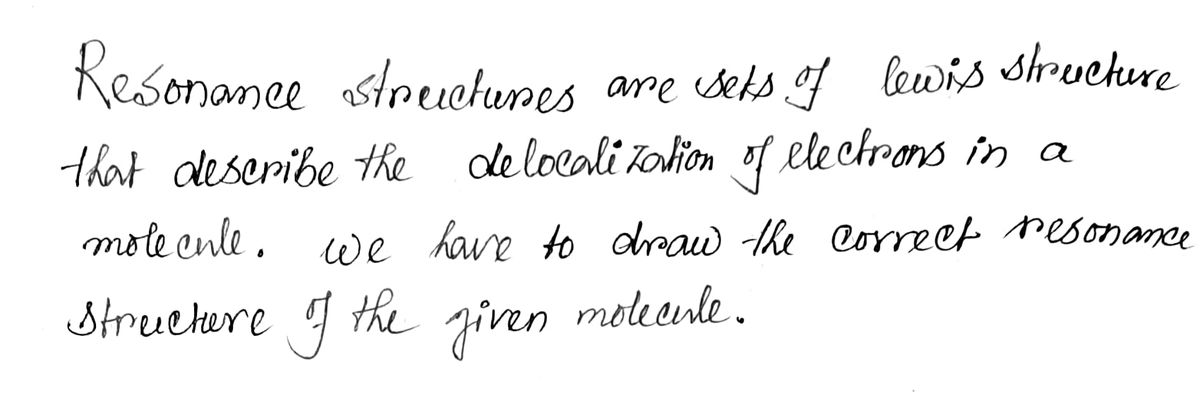 Resonance structures are sets of lewis structure
that describe the delocalization of electrons in a
molecule. we have to draw the correct resonance
structure of the given molecule.